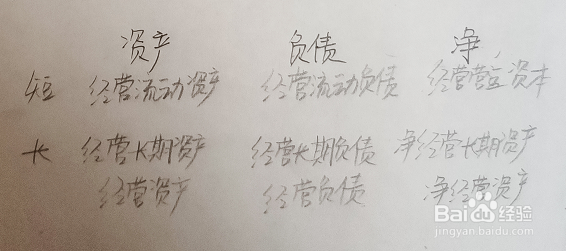 资产 负债 净
短 经营流动资产 经营流动负债 经营营运资本
长 经营长期资产 经营长期负债 净经营长期资产
经营资产 经营负债 净经营资产
Baidu经验
jingyan.baidu.com